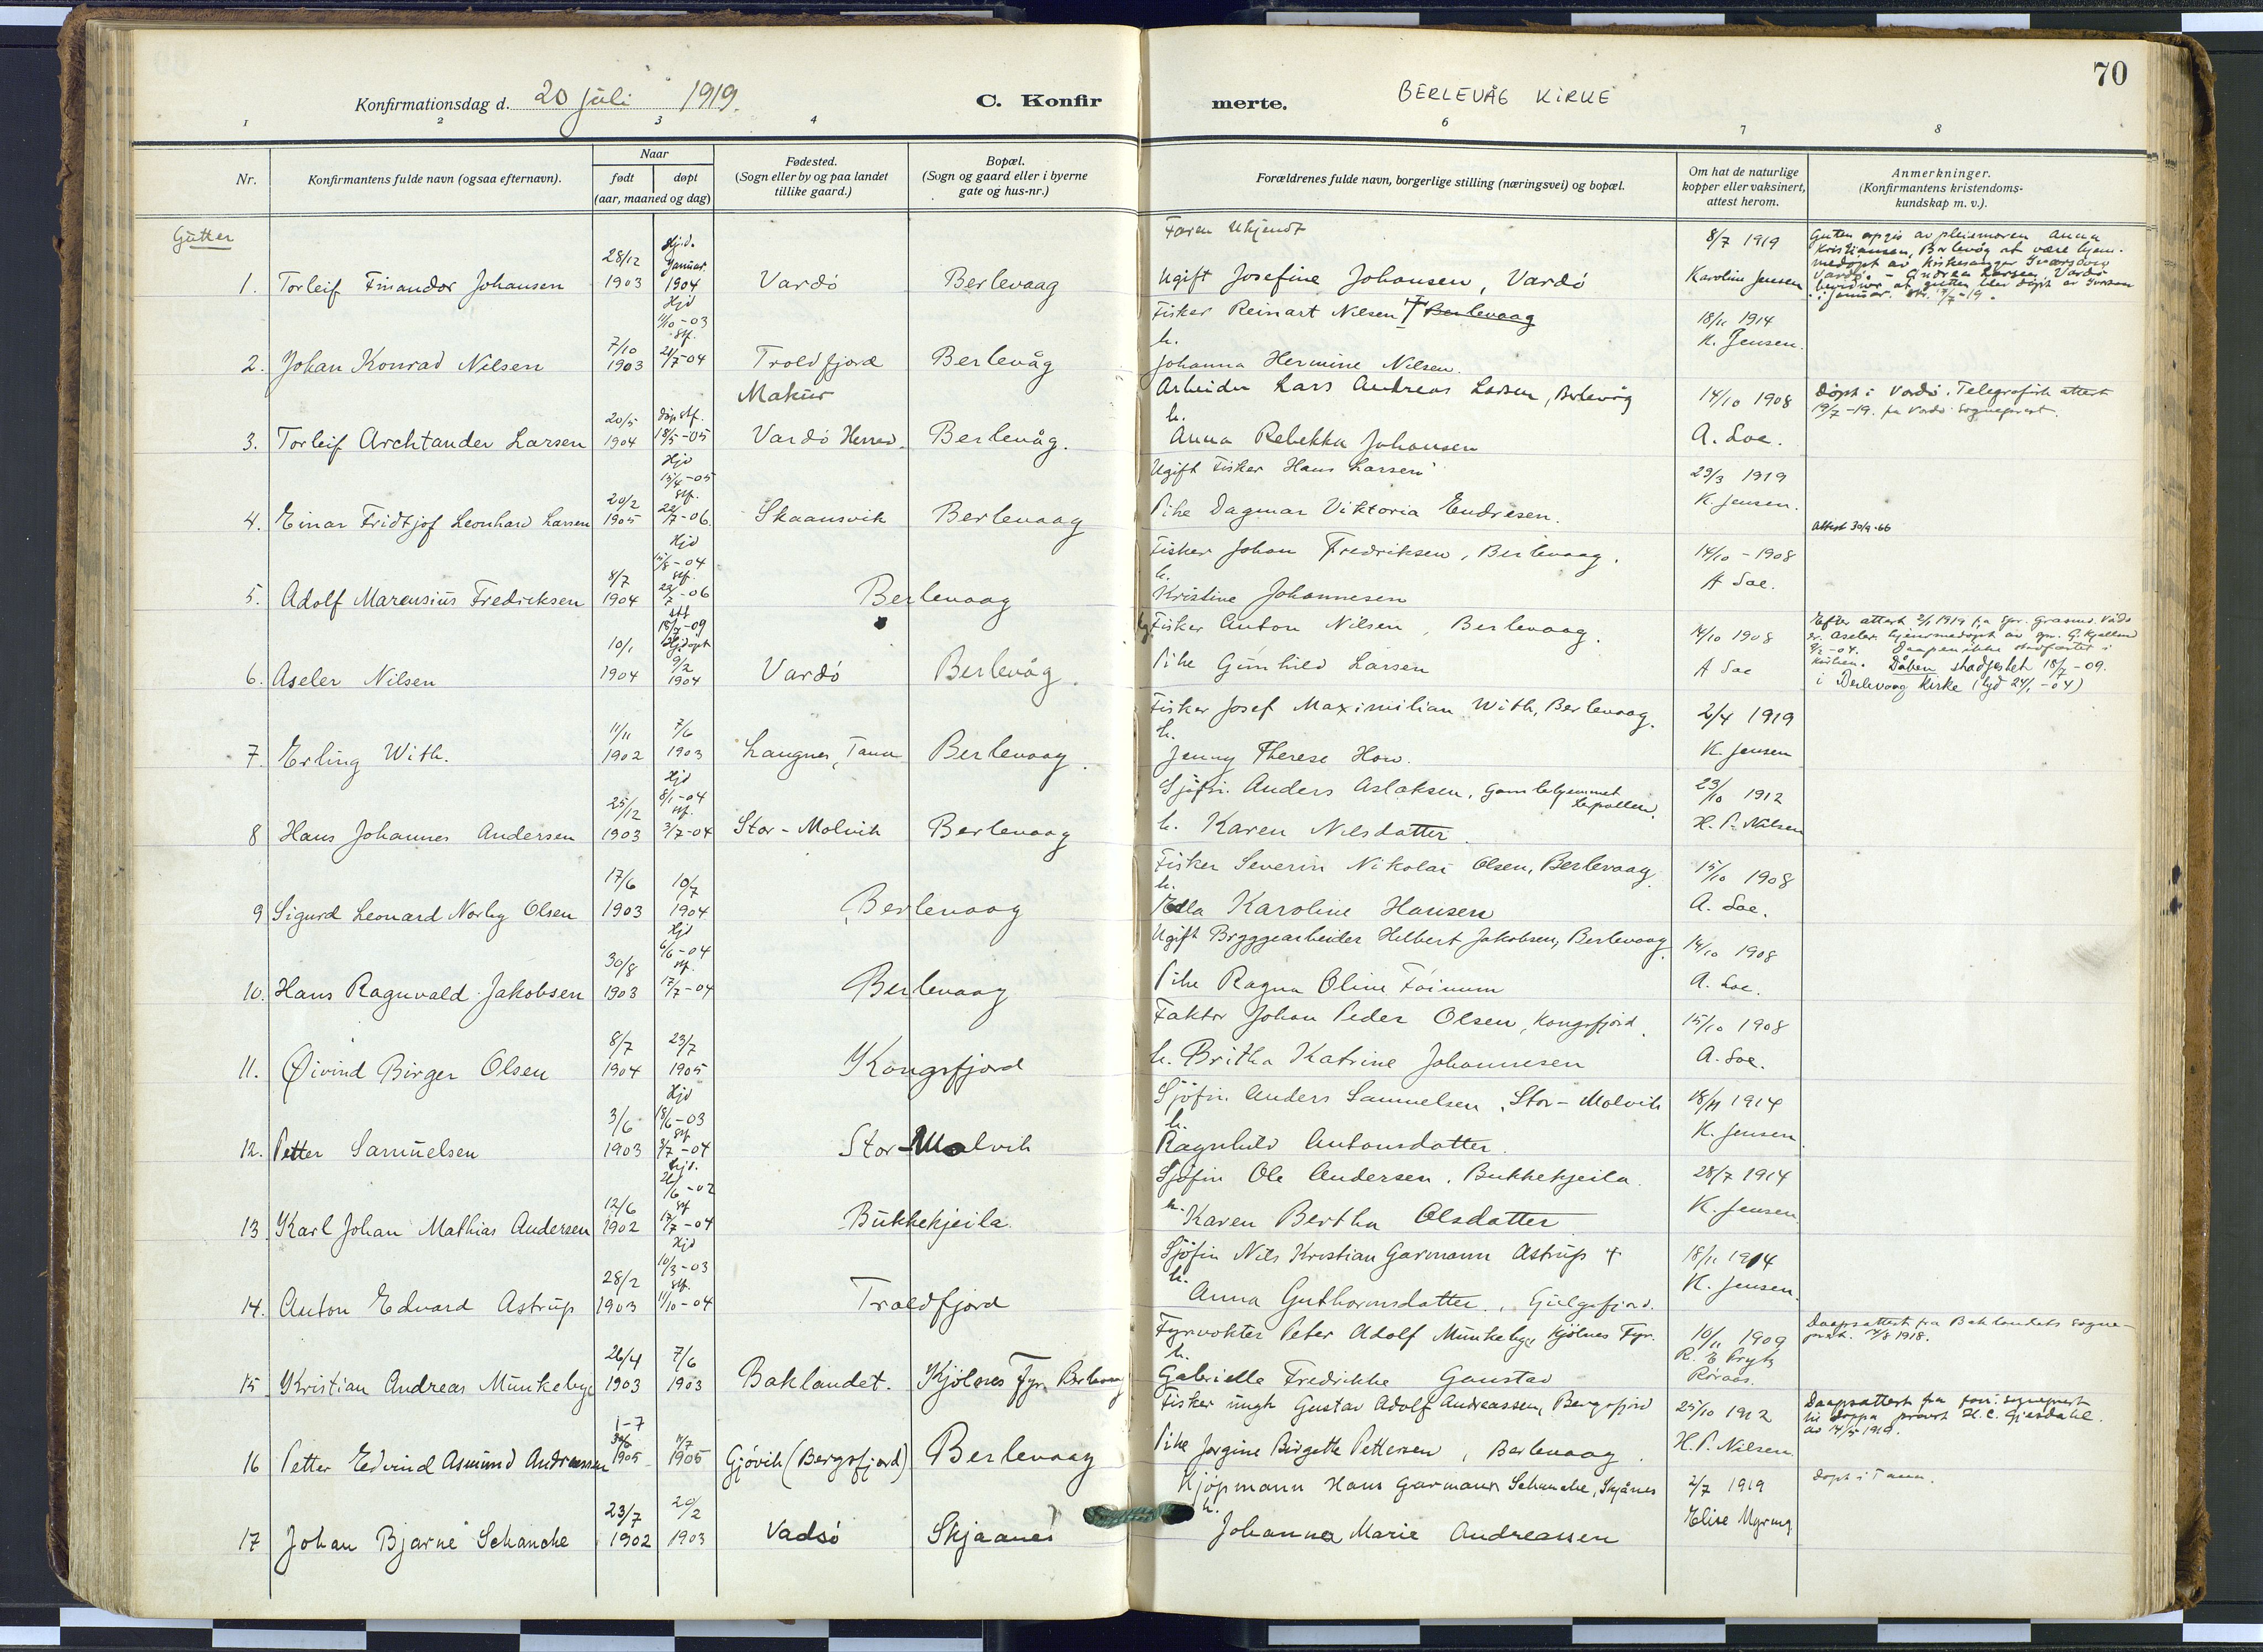 70
Konfirmationsdag d. 20 juli 1919.
C. Konfirmerte.
BERLEVÅG KIRKE
1 2 3 4 6 7 8
Nr.
Konfirmantens fulde navn (ogsaa efternavn).
Naar
født
døpt
(aar, maaned og dag)
Fødested.
(Sogn eller by og paa landet
tillike gaard.)
Bopæl.
(Sogn og gaard eller i byerne
gate og hus-nr.)
Forældrenes fulde navn, borgerlige stilling (næringsvei) og bopæl.
Om hat de naturlige
kopper eller vaksinert,
attest herom.
Anmerkninger.
(Konfirmantens kristendoms-
kundskap m. v.).
Gutter
1. Torleif Finandor Johansen 28/12 1903 Hjd. Januar 1904 Vardö Berlevaag
Faren ukjendt
Ugift Josefine Johansen, Vardö
8/7 1919
Karoline Jensen
Gutten opgis av pleiemoren Anna
Kristiansen, Berlevåg at være hjem-
medöpt av kirkesanger
Vardö. - Andrea Larsen, Vardö
2. Johan Konrad Nilsen 7/10 1903 Hjd 11/10-03 stf. 21/7-04 Troldfjord Berlevåg
Fisker Reinart Nilsen † Berlevaag
h.
Johanna Hermine Nilsen.
18/11 1914
K. Jensen.
3. Torleif Archtander Larsen 20/5 1904 döp stf. 18/5-05 Makur Vardö Herred. Berlevåg.
Arbeider Lars Andreas Larsen, Berlevåg
h.
Anna Rebekka Johansen
14/10 1908
A. Soe.
Döpt i Vardö. Telegrafisk attest
19/7-19. fra Vardö sogneprest.
4. Einar Fridtjof Leonhard Larsen 20/2 1905 Hjd 15/4-05 stf. 22/7-06 Skaansvik Berlevaag
Ugift Fisker Hans Larsen
Pike Dagmar Viktoria Endresen.
29/3 1919
K. Jensen.
Attest 30/9-66
5. Adolf Marensius Fredriksen 8/7 1904 Hjd 15/8-04 stf. 22/7-06 Berlevaag
Fisker Johan Fredriksen, Berlevaag.
h.
Kristine Johannesen
14/10-1908
A Soe.
6. Aseler Nilsen 10/1 1904 stf 18/7-09 Hjdöpt 9/2 1904 Vardö Berlevåg.
Fisker Anton Nilsen, Berlevaag.
Pike Gunhild Larsen
14/10 1908
A Soe
Dåben stadfestet 18/7-09.
i Berlevaag Kirke
7. Erling With. 11/11 1902 7/6 1903 Langnes, Tana Berlevaag.
Fisker Josef Maximilian With, Berlevaag.
h.
Jenny Therese How.
2/4 1919
K. Jensen
8 Hans Johannes Andersen 25/12 1903 Hjd 8/1-04 stf. 3/7-04 Stor-Molvik Berlevaag
Sjöfin. Anders Aslaksen, Gamlehjemmet
h. Karen Nilsdatter.
23/10 1912
H. P. Nilsen
9 Sigurd Leonard Norby Olsen 17/6 1903 10/7 1904 Berlevaag
Fisker Severin Nikolai Olsen, Berlevaag.
h.
Karoline Hansen
15/10 1908
A. Soe.
10. Hans Ragnvald Jakobsen 30/8 1903 Hjd 6/6-04 stf. 17/7-04 Berlevaag
Ugift Bryggearbeider Hilbert Jakobsen, Berlevaag.
Pike Ragna Oline Foinum
14/10 1908
A. Soe.
11. Øivind Birger Olsen 8/7 1904 23/7 1905 Kongsfjord
Faktor Johan Peder Olsen, Kongsfjord.
h. Britha Katrine Johannesen
15/10 1908
A. Soe.
12. Petter Samuelsen 3/6 1903 Hjd 18/6-03 stf 3/7-04 Stor-Molvik
Sjöfin. Anders Samuelsen, Stor-Molvik
h.
Ragnhild Antonsdatter.
18/11 1914
K. Jensen.
13. Karl Johan Mathias Andersen 12/6 1902 hjd. 26/6-02 stf 17/7-04 Bukkekjeila.
Sjöfin Ole Andersen, Bukkekjeila.
h. Karen Bertha Olsdatter
28/7 1914
K. Jensen.
14. Anton Edvard Astrup 28/2 1903 Hjd 10/3-03 stf. 11/10-04 Troldfjord
Sjöfin Nils Kristian Garmann Astrup +
h.
Anna Guthormsdatter, Gulgofjord.
18/11 1914
K. Jensen.
15. Kristian Andreas Munkeby 26/4 1903 7/6 1903 Baklandet. Kjölnes Fyr. Berlevaag
Fyrvokter Peter Adolf Munkeby, Kjölnes Fyr.
h.
Gabrielle Fredrikke Gaustad
10/11 1909
Röraas.
Daapsattest fra Baklandets sogne-
prest. 7/8 1918.
16 Petter Edvind Asmund Andreassen 1-7 30/6 1905 1905 Gjövik (Bergsfjord) Berlevaag
Fisker ungk Gustav Adolf Andreassen, Bergsfjord
Pike Jorgine Birgette Pettersen, Berlevaag.
25/10 1912
H. P. Nilsen
17 Johan Bjarne Schanche 23/7 1902 20/2 1903 Vadsö Skjaanes
Kjöpmann Hans Garmann Schanche, Skjånes
h.
Johanna Marie Andreassen
2/7 1919
Elise
döpt i Tana.